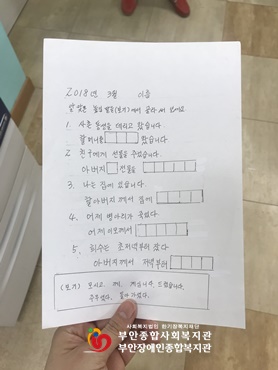 2018년 3월 이름
알맞은 높임말을 <보기>에서 골라 써 보세요
1. 사촌 동생을 데리고 왔습니다
할머니를 왔습니다
2. 친구에게 선물을 주었습니다.
아버지 선물을
3. 나는 집에 있습니다
할아버지께서 집에
4. 어제 병아리가 죽었다.
어제
5. 희수는 초저녁부터 잤다
아버지께서 저녁부터
<보기> 모시고, 께, 계십니다, 드렸습니다,
주무셨다, 돌아가셨다.
사회복지법인 원기장복지재단
부안종합사회복지관
부안장애인종합복지관